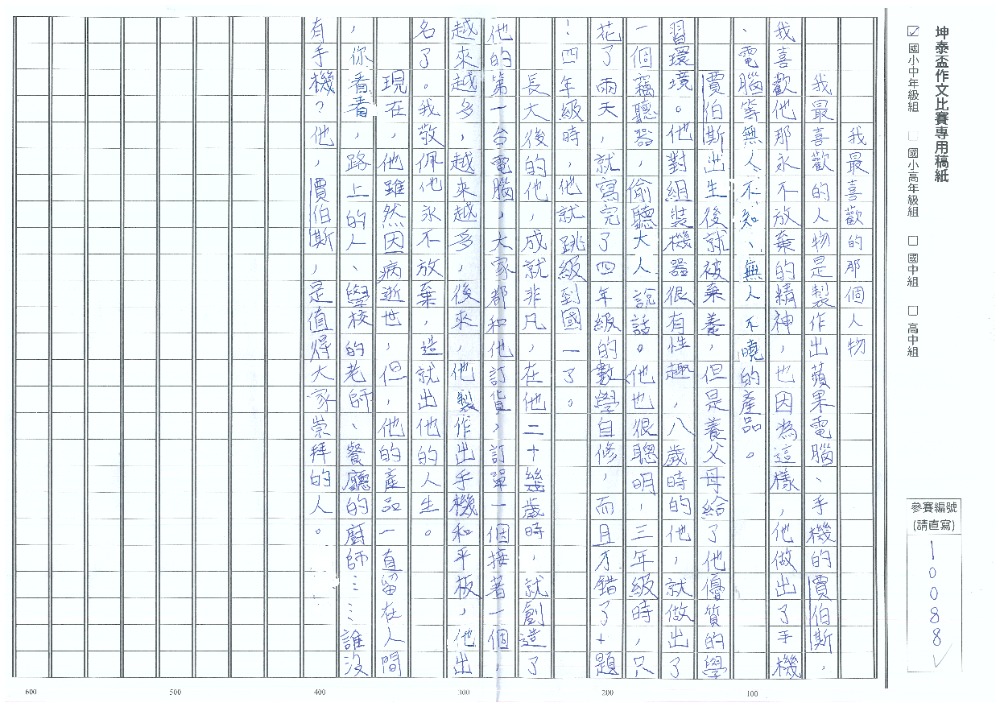 坤泰盃作文比賽專用稿紙
☑ 國小中年級組 □ 國小高年級組 □ 國中組 □ 高中組
參賽編號
(請直寫)
10088
我最喜歡的那個人物
我最喜歡的人物是製作出蘋果電腦、手機的賈伯斯，
我喜歡他那永不放棄的精神，也因為這樣，他做出了手機
、電腦等無人不知、無人不曉的產品。
賈伯斯出生後就被棄養，但是養父母給了他優質的學
習環境。他對組裝機器很有性趣，八歲時的他，就做出了
一個竊聽器，偷聽大人說話。他也很聰明，三年級時，只
花了兩天，就寫完了四年級的數學自修，而且才錯了十題
！四年級時，他就跳級到國一了。
長大後的他，成就非凡，在他二十幾歲時，就創造了
他的第一台電腦，大家都和他訂貨，訂單一個接著一個，
越來越多，越來越多，後來，他製作出手機和平板，他出
名了。我敬佩他永不放棄，造就出他的人生。
現在，他雖然因病逝世，但，他的產品一直留在人間
，你看看，路上的人、學校的老師、餐廳的廚師……誰沒
有手機？他，賈伯斯，是值得大家崇拜的人。
100
200
300
400
500
600